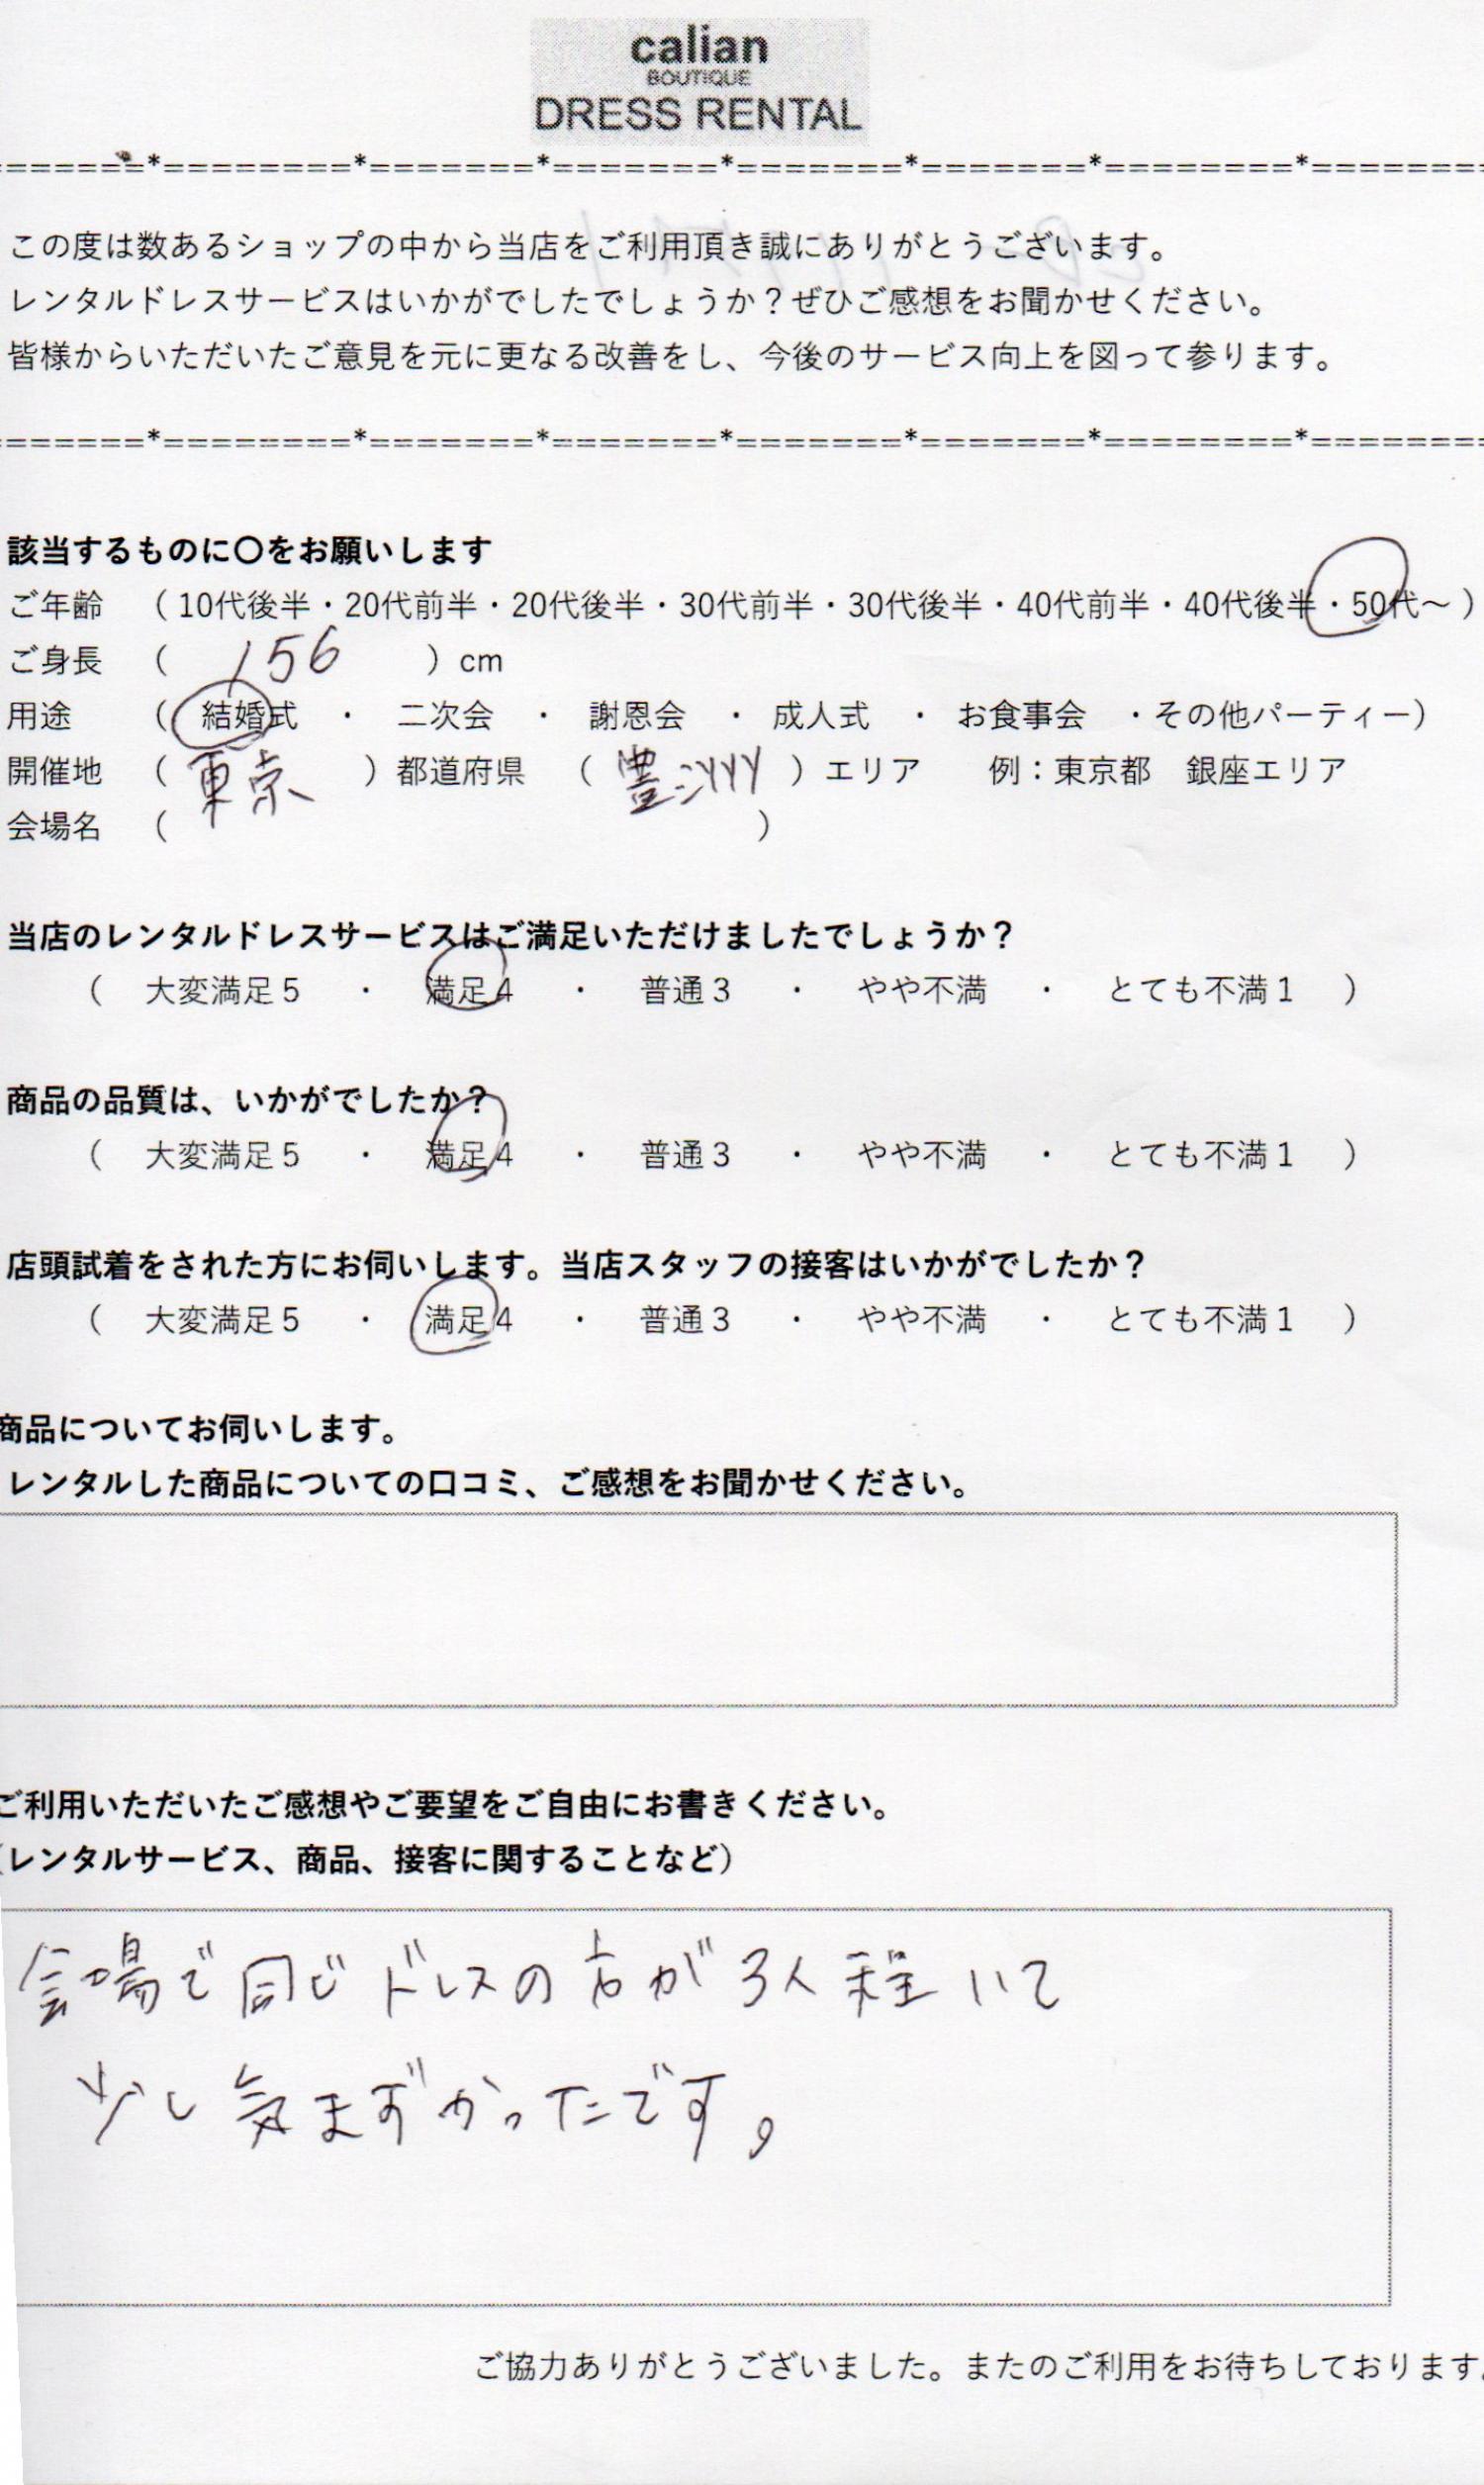 calian
BOUTIQUE
DRESS RENTAL
======*========*=======*=======*=======*=======*========*========
この度は数あるショップの中から当店をご利用頂き誠にありがとうございます。
レンタルドレスサービスはいかがでしたでしょうか？ぜひご感想をお聞かせください。
皆様からいただいたご意見を元に更なる改善をし、今後のサービス向上を図って参ります。
======*========*=======*=======*=======*=======*========*========
該当するものに〇をお願いします
ご年齢 （ 10代後半・20代前半・20代後半・30代前半・30代後半・40代前半・40代後半・50代～ ）
ご身長 （ 156 ）cm
用途 （ 結婚式 ・ 二次会 ・ 謝恩会 ・ 成人式 ・ お食事会 ・その他パーティー）
開催地 （ 東京 ）都道府県 （ 豊洲 ）エリア 例：東京都 銀座エリア
会場名 （ ）
当店のレンタルドレスサービスはご満足いただけましたでしょうか？
（ 大変満足５ ・ 満足４ ・ 普通３ ・ やや不満 ・ とても不満１ ）
商品の品質は、いかがでしたか？
（ 大変満足５ ・ 満足４ ・ 普通３ ・ やや不満 ・ とても不満１ ）
店頭試着をされた方にお伺いします。当店スタッフの接客はいかがでしたか？
（ 大変満足５ ・ 満足４ ・ 普通３ ・ やや不満 ・ とても不満１ ）
商品についてお伺いします。
レンタルした商品についての口コミ、ご感想をお聞かせください。
ご利用いただいたご感想やご要望をご自由にお書きください。
（レンタルサービス、商品、接客に関することなど）
会場で同じドレスの方が3人程いて
少し気まずかったです。
ご協力ありがとうございました。またのご利用をお待ちしております。